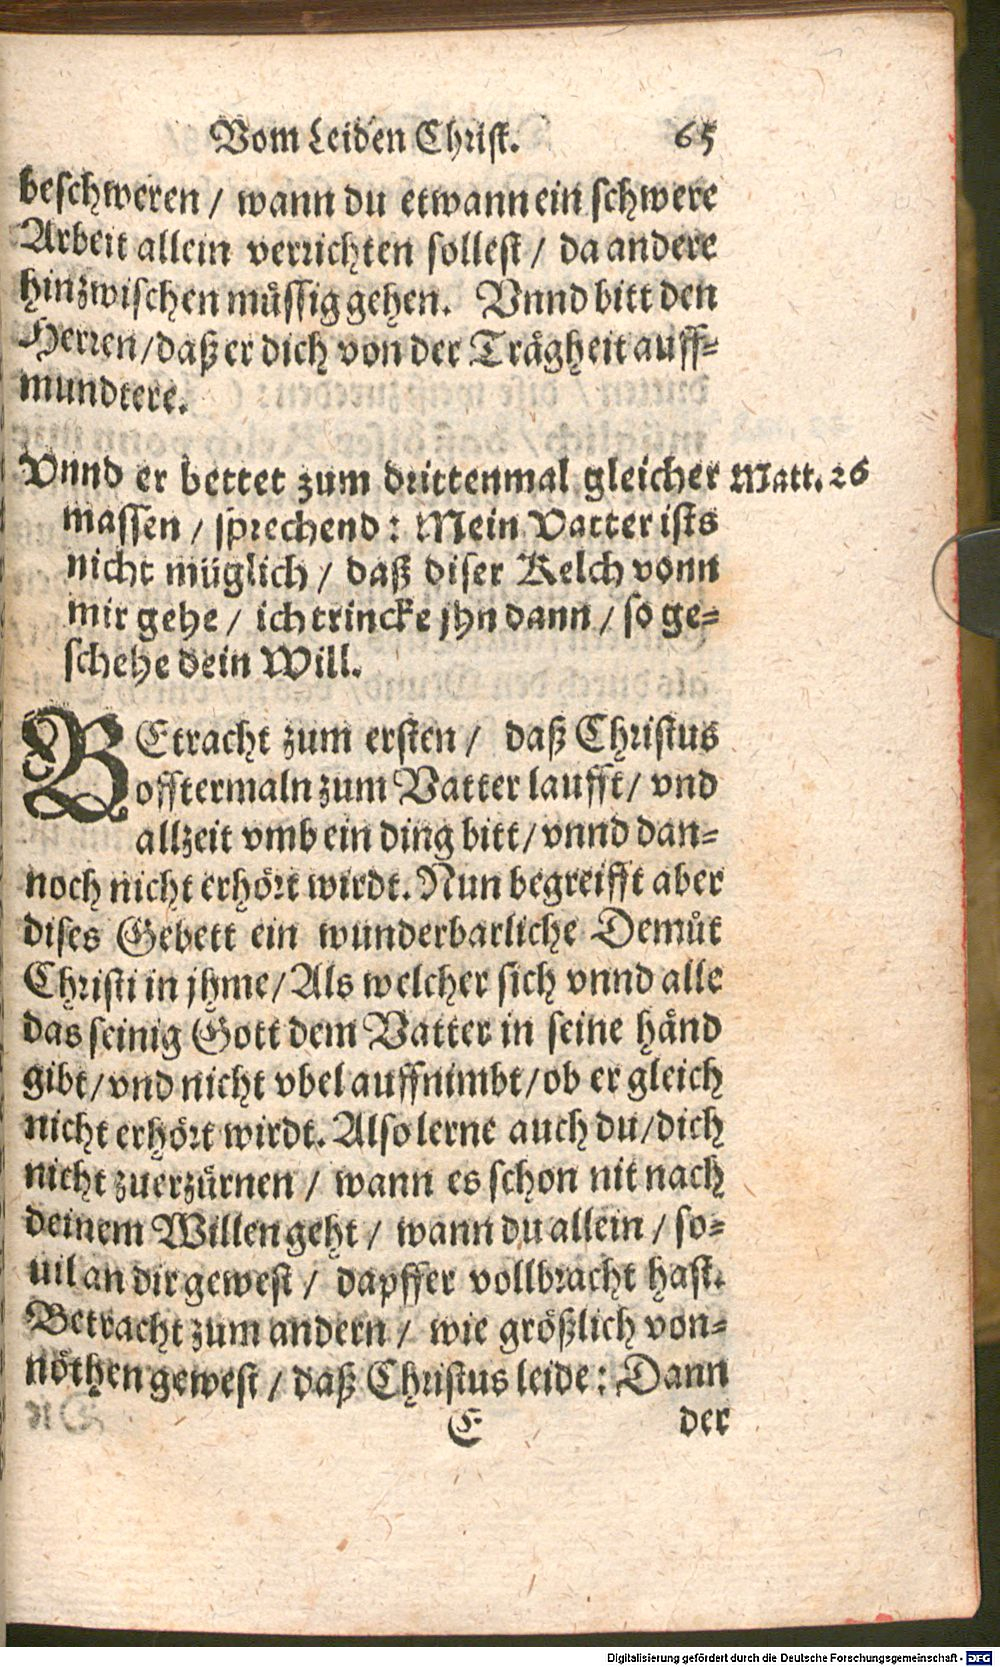 Vom Leiden Christ. 65
beschweren / wann du etwann ein schwere
Arbeit allein verrichten sollest / da andere
hinzwischen müssig gehen. Vnnd bitt den
Herren / daß er dich von der Trägheit auff-
mundtere.
Vnnd er bettet zum drittenmal gleicher Matt. 26
massen / sprechend: Mein Vatter ists
nicht müglich / daß diser Kelch vonn
mir gehe / ich trincke jhn dann / so ge-
schehe dein Will.
BEtracht zum ersten / daß Christus
offtermaln zum Vatter laufft / vnd
allzeit vmb ein ding bitt / vnnd dan-
noch nicht erhört wirdt. Nun begreifft aber
dises Gebett ein wunderbarliche Demůt
Christi in jhme / Als welcher sich vnnd alle
das seinig Gott dem Vatter in seine händ
gibt / vnd nicht vbel auffnimbt / ob er gleich
nicht erhört wirdt. Also lerne auch du / dich
nicht zuerzürnen / wann es schon nit nach
deinem Willen geht / wann du allein / so-
uil an dir gewest / dapffer vollbracht hast.
Betracht zum andern / wie größlich von-
nöthen gewest / daß Christus leide: Dann
E der
Digitalisierung gefördert durch die Deutsche Forschungsgemeinschaft - DFG